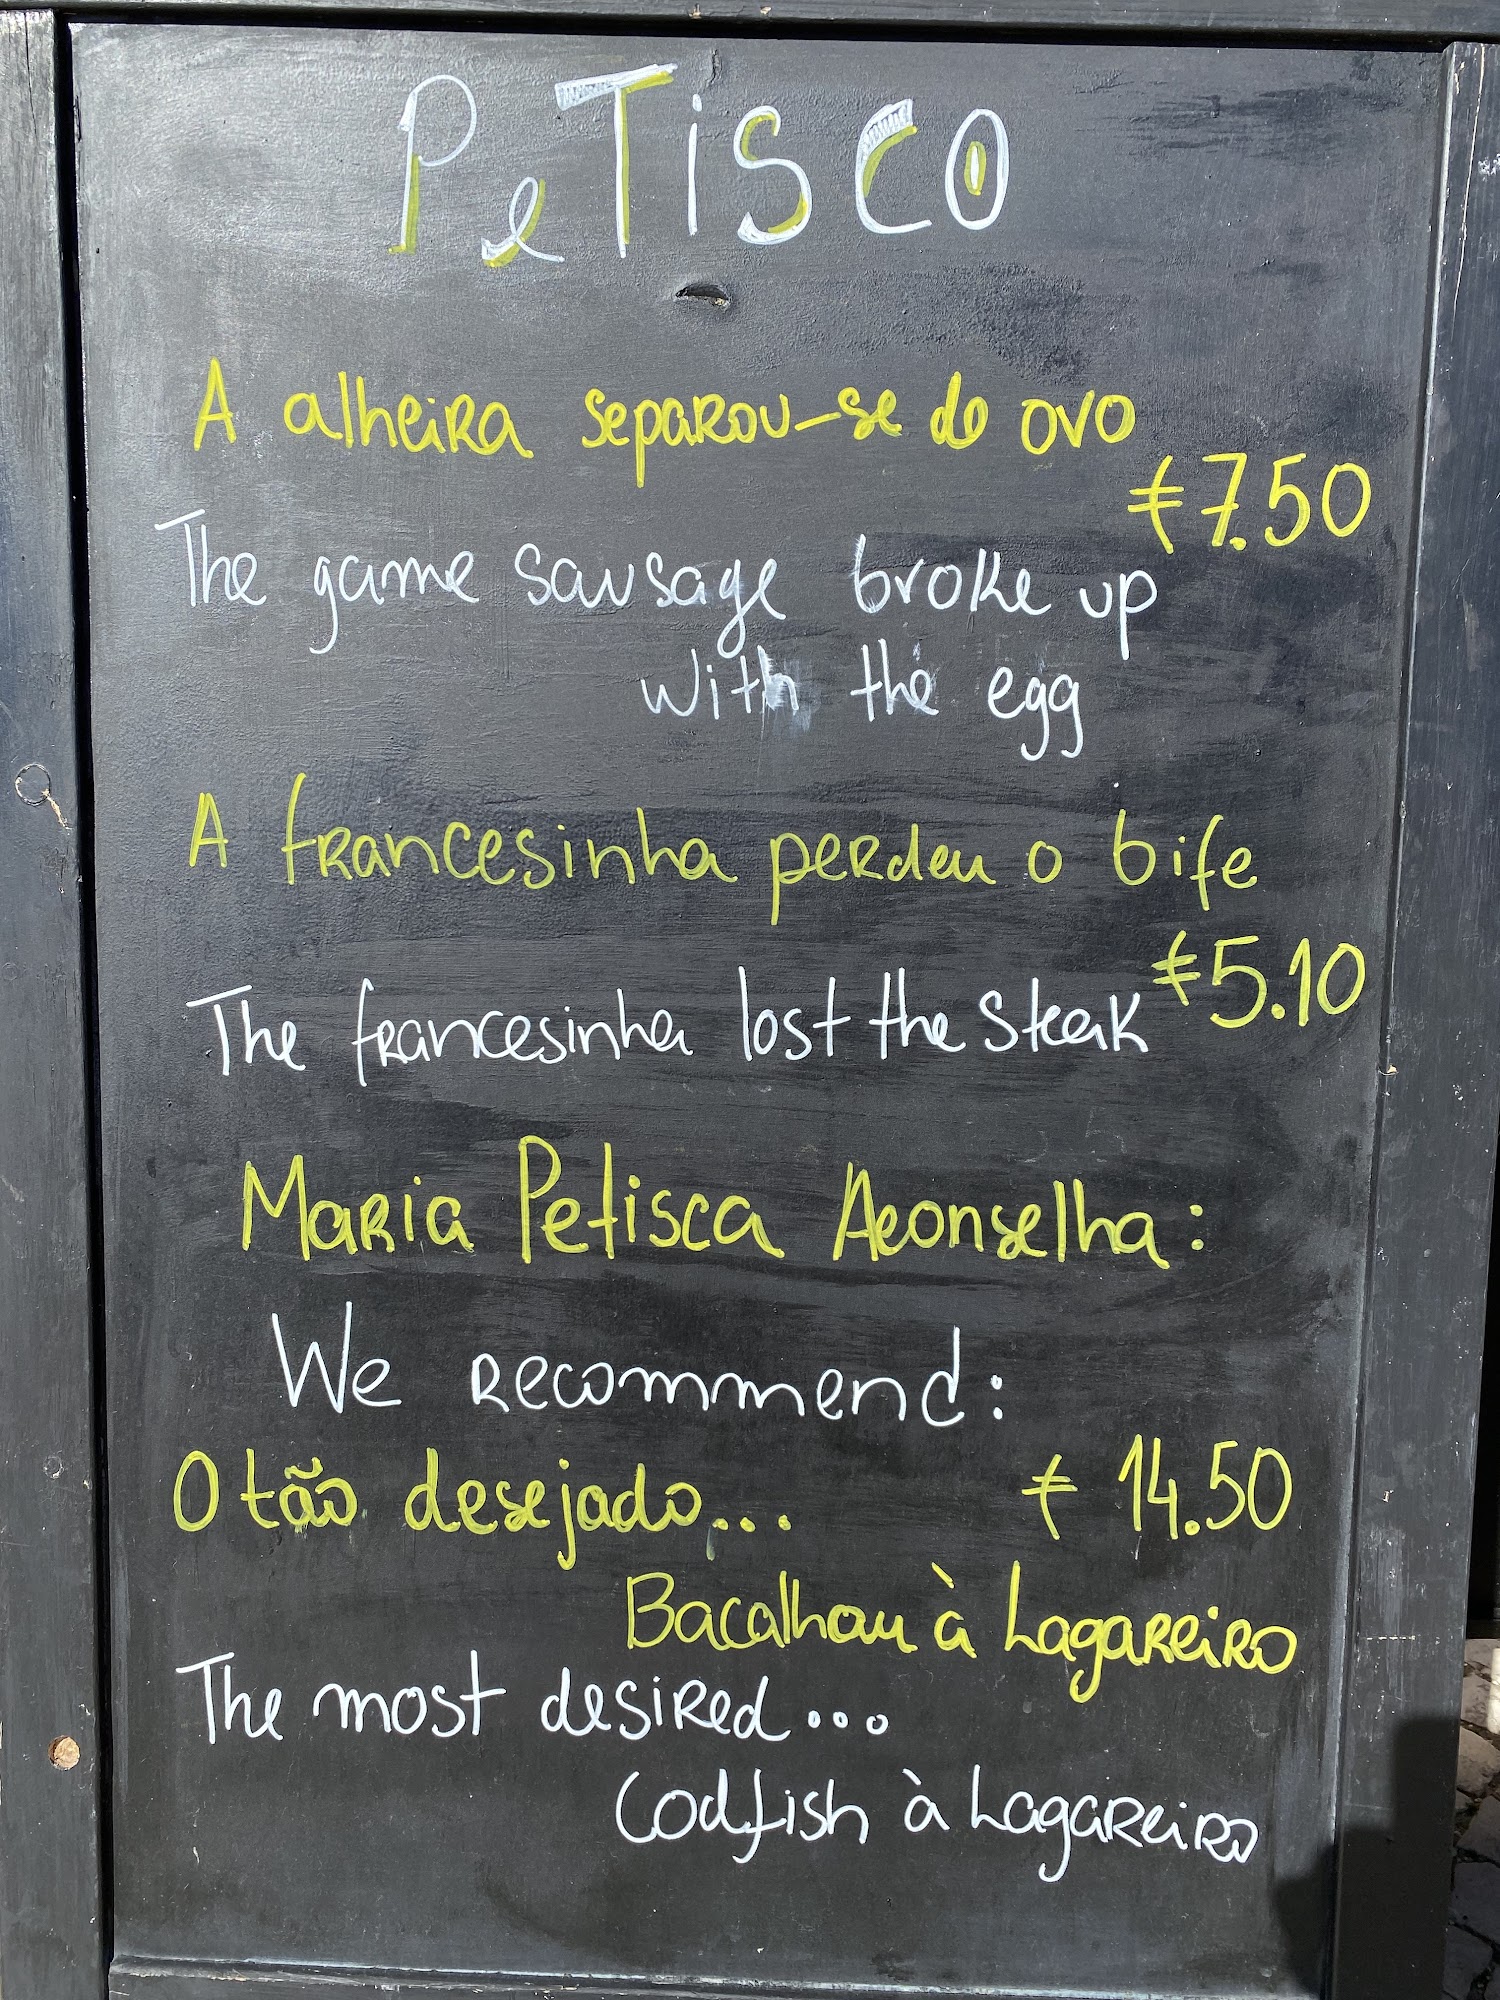 PeTisco
A alheira separou-se do ovo
€7.50
The game sausage broke up
with the egg
A francesinha perdeu o bife
€5.10
The francesinha lost the steak
Maria Petisca Aconselha:
We recommend:
O tão desejado... € 14.50
Bacalhau à Lagareiro
The most desired...
Codfish à Lagareiro